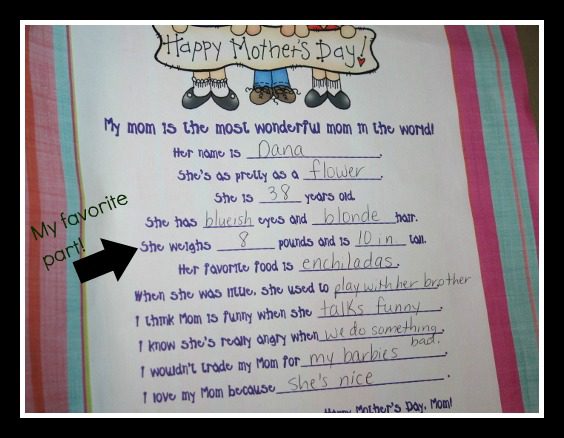 Happy Mother's Day!
My mom is the most wonderful mom in the world!
Her name is Dana.
She's as pretty as a flower.
She is 38 years old.
She has blueish eyes and blonde hair.
My favorite
part!
She weighs 8 pounds and is 10 in tall.
Her favorite food is enchiladas.
When she was little, she used to play with her brother
I think Mom is funny when she talks funny.
I know she's really angry when we do something
bad.
I wouldn't trade my Mom for my barbies.
I love my Mom because she's nice.
Happy Mother's Day, Mom!